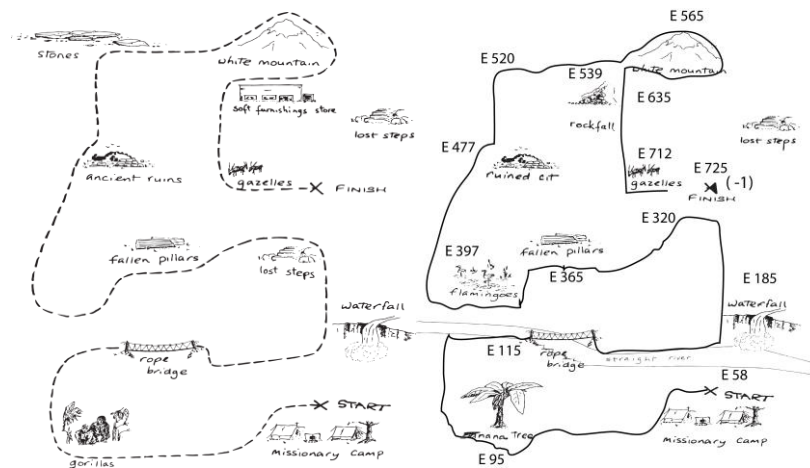 stones
white mountain
soft furnishings store
lost steps
ancient ruins
gazelles
FINISH
fallen pillars
lost steps
waterfall
rope
bridge
START
missionary Camp
gorillas
E 565
E 520
white mountain
E 539
E 635
rockfall
lost steps
E 477
ruined cit
E 712
gazelles
E 725
(-1)
FINISH
E 320
fallen pillars
E 397
flamingoes
E 365
E 185
waterfall
E 115
rope
bridge
straight river
E 58
START
anana Tree
missionary Camp
E 95